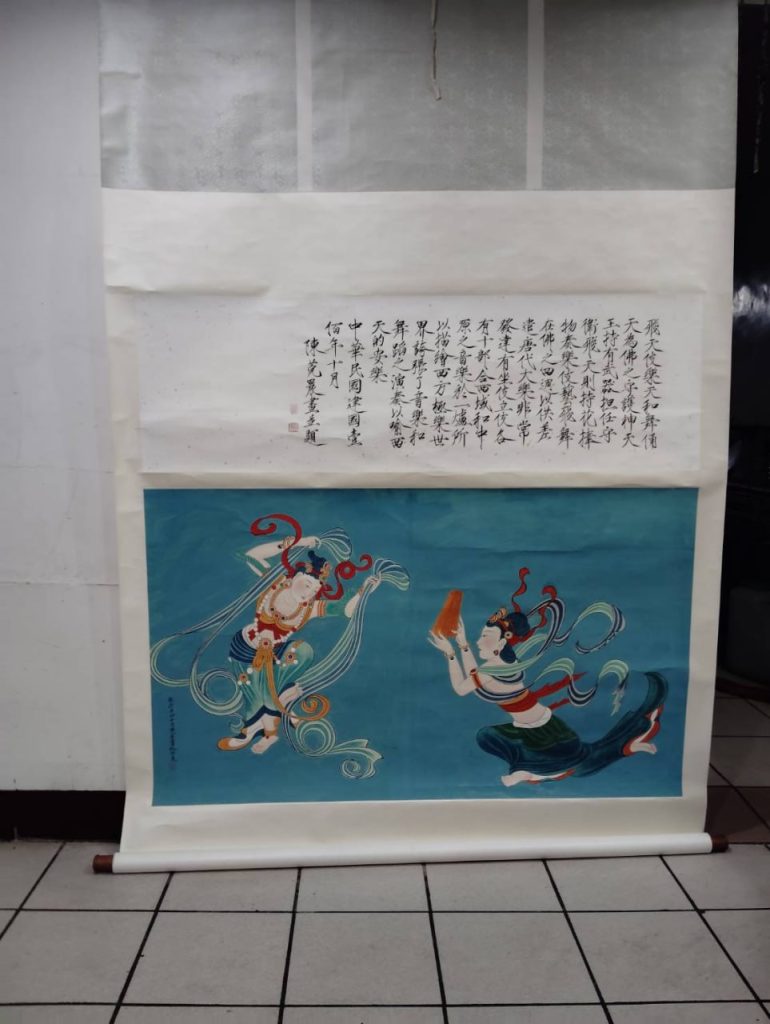 飛天伎樂天和舞俑
天為佛之守護神天
王持有武器担任守
衛飛天則持花捧
物奏樂伎熱夜舞
在佛之四週以供差
遣唐代伎樂非常
發達有坐伎立伎各
有十部合西域和中
原之音樂於一爐所
以描繪西方極樂世
界誇張了音樂和
舞蹈之演奏以喻西
天的安樂
中華民國建國壹
佰年十月
陳莞晨畫並題